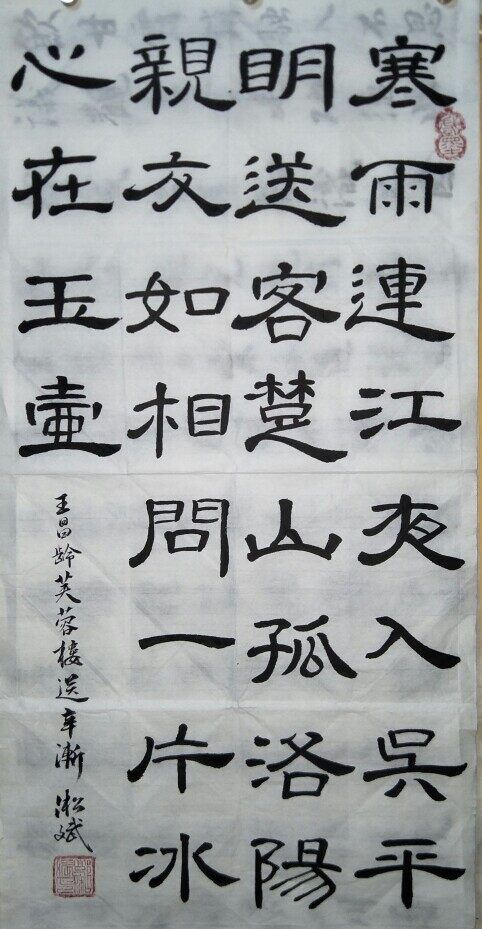 寒雨連江夜入吳平
明送客楚山孤洛陽
親友如相問一片冰
心在玉壷
王昌齡芙蓉樓送辛漸 淞斌